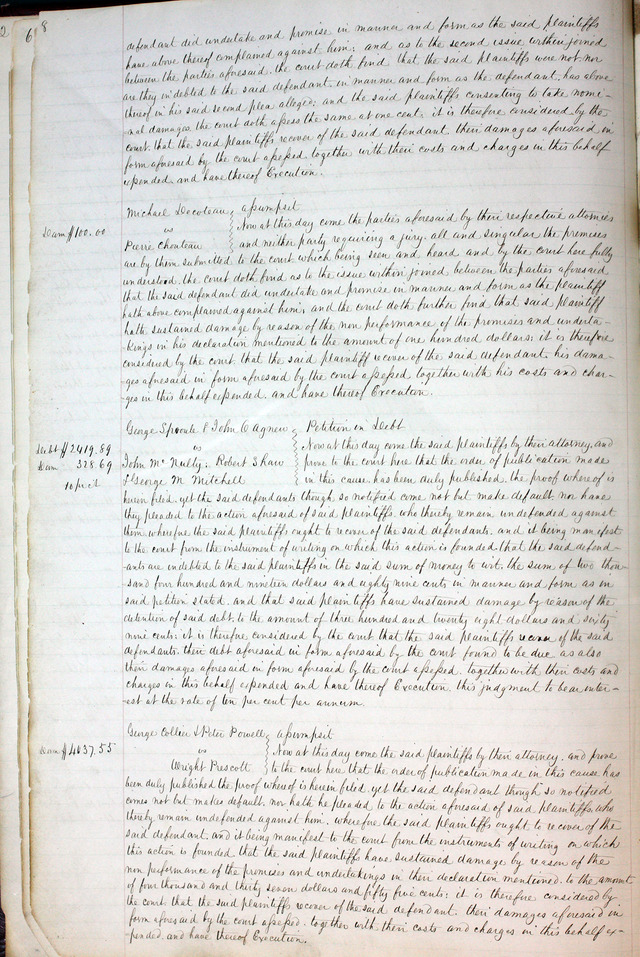 2
618
defendant did undertake and promise in manner and form as the said plaintiffs
have above thereof complained against him; and as to the second issue within joined
between the parties aforesaid, the court doth find that the said plaintiffs were not, nor
are they indebted to the said defendant, in manner and form as the defendant, has above
thereof in his said second plea alleged; and the said plaintiffs consenting to take nomi-
nal damages, the court doth assess the same at one cent; it is therefore considered by the
court that the said plaintiffs recover of the said defendant their damages aforesaid in
form aforesaid by the court assessed together with their costs and charges in this behalf
expended, and have thereof Execution.
Michael Decoteau assumpsit
Dam $100.00 vs Now at this day come the parties aforesaid by their respective attornies
Pierre Chouteau and neither party requiring a jury, all and singular the premises
are by them submitted to the court which being seen and heard and by the court here fully
understood, the court doth find as to the issue within joined between the parties aforesaid,
that the said defendant did undertake and promise in manner and form as the plaintiff
hath above complained against him; and the court doth further find that said plaintiff
hath sustained damage by reason of the non performance of the promises and underta-
kings in his declaration mentioned to the amount of one hundred dollars; it is therefore
considered by the court that the said plaintiff recover of the said defendant, his dama-
ges aforesaid in form aforesaid by the court assessed, together with his costs and char-
ges in this behalf expended, and have thereof Execution.
George Sproule & John C Agnew Petition in Debt
Debt $2419.89 vs Now at this day come the said plaintiffs by their attorney, and
Dam 328.69 John McNulty, Robert Shaw prove to the court here that the order of publication made
10 pr ct & George M Mitchell in this cause has been duly published, the proof where of is
herein filed, yet the said defendants though so notified come not but make default, nor have
they pleaded to the action aforesaid of said plaintiffs, who thereby remain undefended against
them, wherefore the said plaintiffs ought to recover of the said defendants, and it being manifest
to the court from the instrument of writing on which this action is founded that the said defend-
ants are indebted to the said plaintiffs in the said sum of money to wit, the sum of two thou-
sand four hundred and nineteen dollars and eighty nine cents in manner and form as in
said petition stated, and that said plaintiffs have sustained damage by reason of the
detention of said debt, to the amount of three hundred and twenty eight dollars and sixty
nine cents; it is therefore considered by the court that the said plaintiffs recover of the said
defendants, their debt aforesaid in form aforesaid by the court found to be due as also
their damages aforesaid in form aforesaid by the court assessed, together with their costs and
charges in this behalf expended and have thereof Execution, this judgment to bear inter-
est at the rate of ten per cent per annum.
George Collier & Peter Powell assumpsit
Dam $4037.55 vs Now at this day come the said plaintiffs by their attorney, and prove
Wright Prescott to the court here that the order of publication made in this cause has
been duly published the proof whereof is herein filed, yet the said defendant though so notified
comes not but makes default, nor hath he pleaded to the action aforesaid of said plaintiffs, who
thereby remain undefended against him, wherefore the said plaintiffs ought to recover of the
said defendant, and it being manifest to the court from the instruments of writing on which
this action is founded that the said plaintiffs have sustained damage by reason of the
non performance of the promises and undertakings in their declaration mentioned, to the amount
of four thousand and thirty seven dollars and fifty five cents; it is therefore considered by
the court that the said plaintiffs recover of the said defendant, their damages aforesaid in
form aforesaid by the court assessed, together with their costs and charges in this behalf ex-
pended, and have thereof Execution.